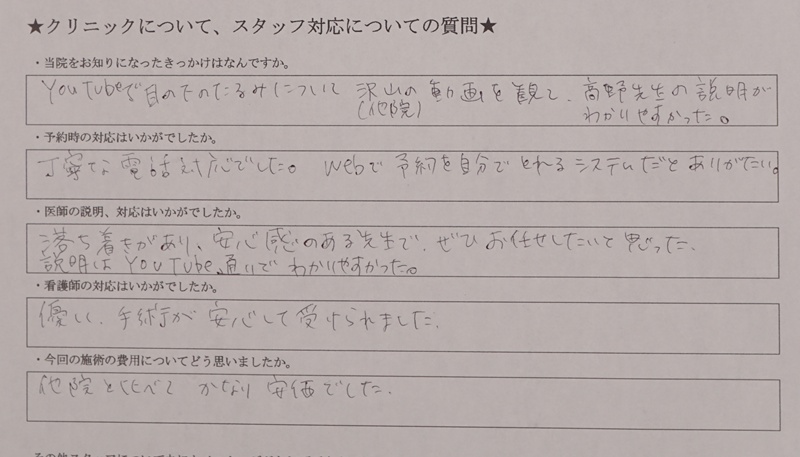 ★クリニックについて、スタッフ対応についての質問★
・当院をお知りになったきっかけはなんですか。
YouTubeで目の下のたるみについて 沢山の動画を観て、高野先生の説明が
(他院) わかりやすかった。
・予約時の対応はいかがでしたか。
丁寧な電話対応でした。 Webで予約を自分でとれるシステムだとありがたい。
・医師の説明、対応はいかがでしたか。
落ち着きがあり、安心感のある先生で、ぜひお任せしたいと思った。
説明はYouTube通りでわかりやすかった。
・看護師の対応はいかがでしたか。
優しい、手術が安心して受けられました。
・今回の施術の費用についてどう思いましたか。
他院と比べてかなり安価でした。